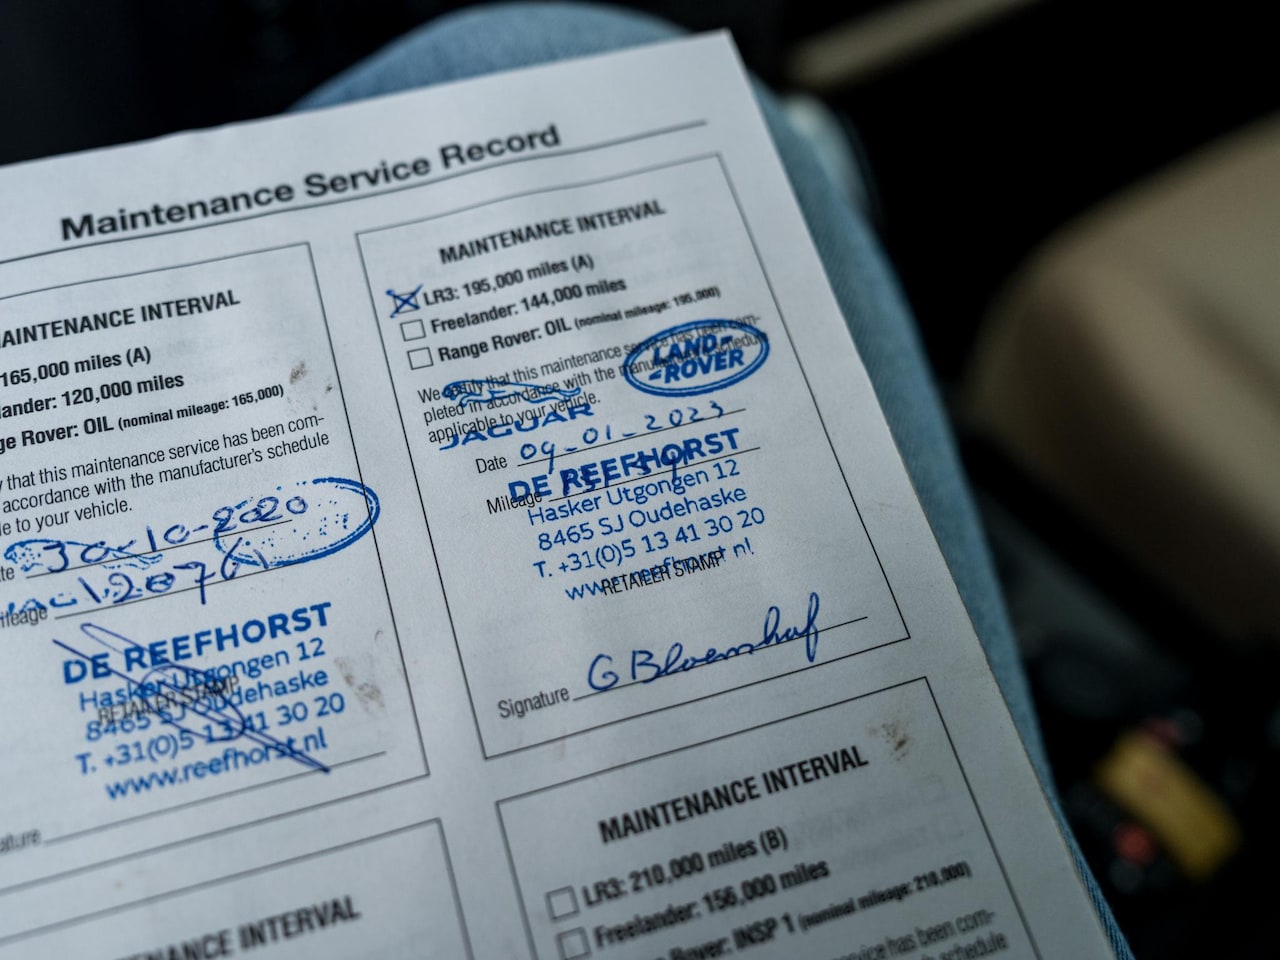 Maintenance Service Record
MAINTENANCE INTERVAL
165,000 miles (A)
lander: 120,000 miles
ge Rover: OIL (nominal mileage: 165,000)
y that this maintenance service has been com-
accordance with the manufacturer's schedule
le to your vehicle.
te 30-10-2020
ileage
DE REEFHORST
Hasker Utgongen 12
RETAILER STAMP
8465 SJ Oudehaske
T. +31(0)5 13 41 30 20
www.reefhorst.nl
ature
MAINTENANCE INTERVAL
LR3: 195,000 miles (A)
Freelander: 144,000 miles
Range Rover: OIL (nominal mileage: 195,000)
We certify that this maintenance service has been com-
pleted in accordance with the manufacturer's schedule
applicable to your vehicle.
LAND-
-ROVER
JAGUAR
Date 09-01-2023
Mileage
DE REEFHORST
Hasker Utgongen 12
8465 SJ Oudehaske
T. +31(0)5 13 41 30 20
www.reefhorst.nl
RETAILER STAMP
Signature G Bloemhof
NANCE INTERVAL
MAINTENANCE INTERVAL
LR3: 210,000 miles (B)
Freelander: 156,000 miles
Rover: INSP 1 (nominal mileage: 210,000)
service has been com-
schedule